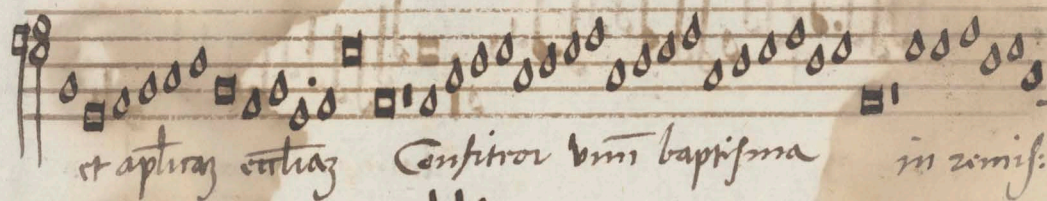 et aplicaʒ eccliaʒ Confiteor vnū baptisma in remiss: